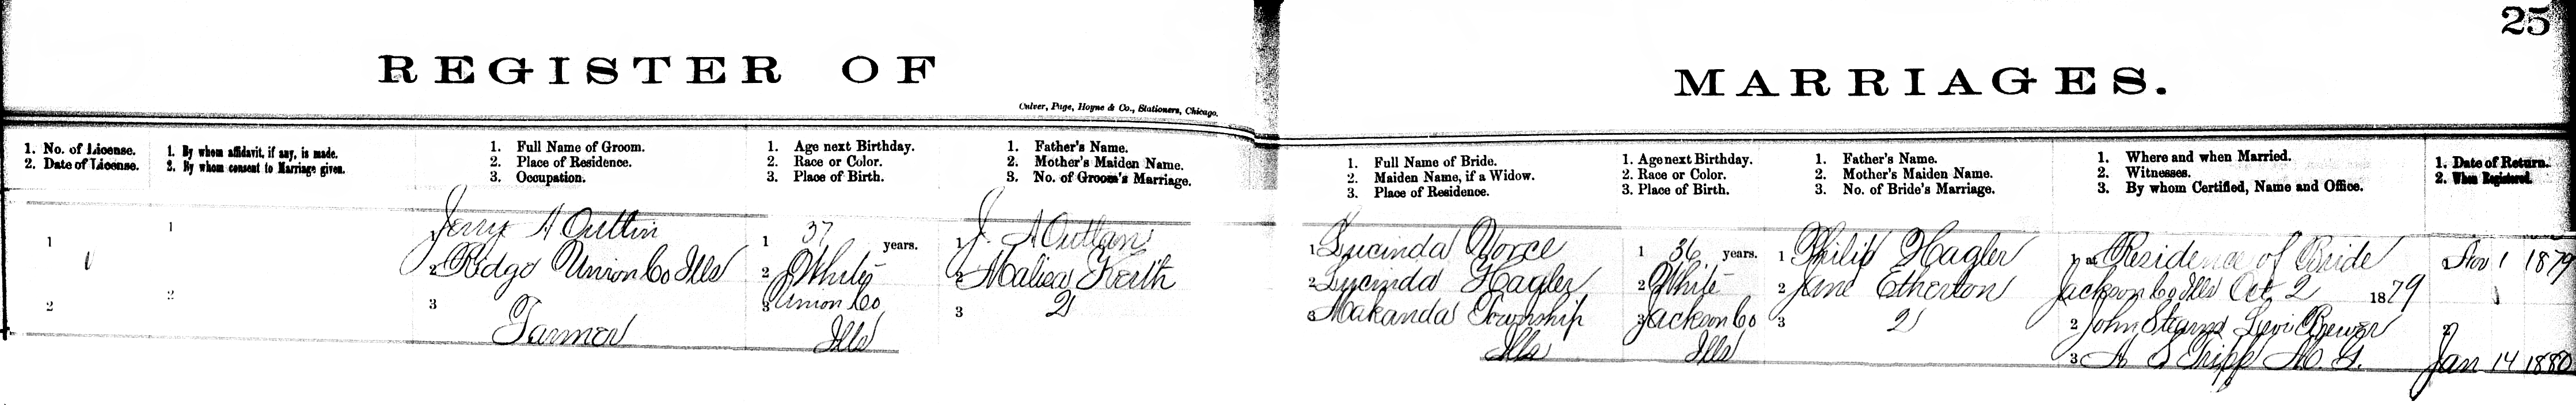 25
REGISTER OF MARRIAGES.
Culver, Page, Hoyne & Co., Stationers, Chicago.
1. No. of License.
2. Date of License.
1. By whom affidavit, if any, is made.
2. By whom consent to Marriage given.
1. Full Name of Groom.
2. Place of Residence.
3. Occupation.
1. Age next Birthday.
2. Race or Color.
3. Place of Birth.
1. Father's Name.
2. Mother's Maiden Name.
3. No. of Groom's Marriage.
1. Full Name of Bride.
2. Maiden Name, if a Widow.
3. Place of Residence.
1. Age next Birthday.
2. Race or Color.
3. Place of Birth.
1. Father's Name.
2. Mother's Maiden Name.
3. No. of Bride's Marriage.
1. Where and when Married.
2. Witnesses.
3. By whom Certified, Name and Office.
1. Date of Return.
2. When Registered.
1
2
1
2
1 Jerry A
2 Ridge Union Co Ills
3
Farmer
1 37 years.
2 White
3 Union Co
Ills
1 J. A Outlan
2 Malica Keith
3 2
1 Lucinda
2 Lucinda Hagler
3 Makanda Township
Ills
1 36 years.
2 White
3 Jackson Co
Ills
1 Philip Hagler
2 Jane Etherton
3 2
1 at Residence of Bride
Jackson Co Ills Oct 2 1879
2 John Stearns Levi Brewer
3 A S Tripp M. G.
1 Nov 1 1879
2
Jan 14 1880